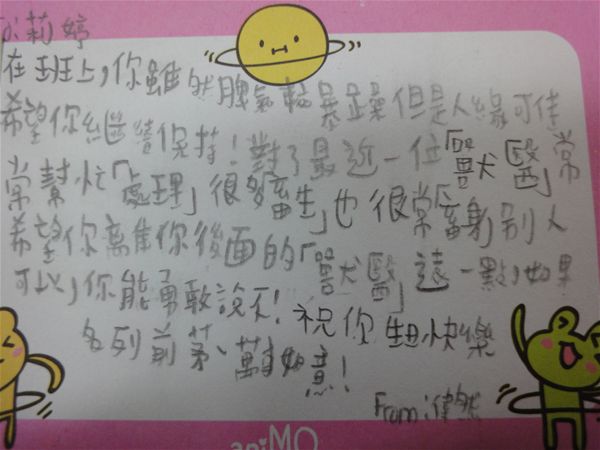 小莉婷
在班上,你雖然脾氣較暴躁但是人緣可佳
希望你繼續保持!對了最近一位「獸醫」常
常幫忙「處理」很多「畜生」也很常「畜身」別人
希望你離你後面的「獸醫」遠一點,如果
可以,你能勇敢說不!祝你生日快樂
名列前茅、萬事如意!
From:偉然
aniMO